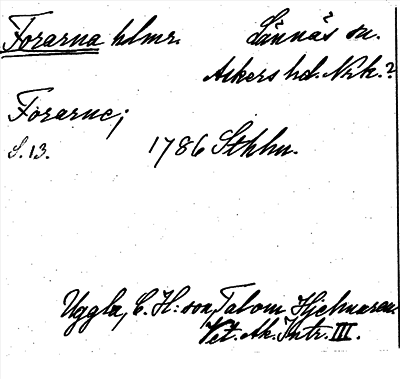 Forarna hlmr. Lännäs sn.
Askers hd. Nrk.?
Forarne;
S. 13. 1786 Sthlm.
Uggla, C. H:son, Tal om Hjelmaren.
Vet. Ak. Intr. III.